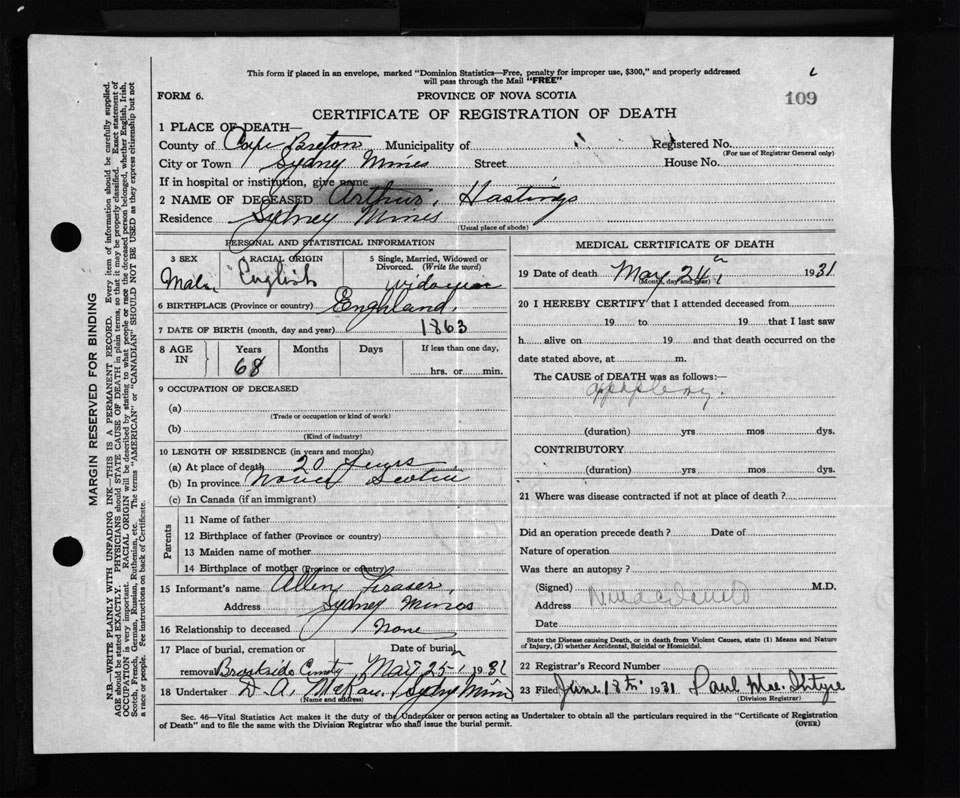 This form if placed in an envelope, marked "Dominion Statistics—Free, penalty for improper use, $300," and properly addressed
will pass through the Mail "FREE"
FORM 6.
PROVINCE OF NOVA SCOTIA
109
CERTIFICATE OF REGISTRATION OF DEATH
1 PLACE OF DEATH—
County of Cape Breton Municipality of Registered No.
(For use of Registrar General only)
City or Town Sydney Mines Street House No.
If in hospital or institution, give name
2 NAME OF DECEASED Arthur, Hastings
Residence Sydney Mines
(Usual place of abode)
PERSONAL AND STATISTICAL INFORMATION
3 SEX Male
RACIAL ORIGIN English
5 Single, Married, Widowed or
Divorced. (Write the word)
6 BIRTHPLACE (Province or country) England,
7 DATE OF BIRTH (month, day and year) 1863
8 AGE IN Years Months Days If less than one day,
68 hrs. or min.
9 OCCUPATION OF DECEASED
(a)
(Trade or occupation or kind of work)
(b)
(Kind of industry)
10 LENGTH OF RESIDENCE (in years and months)
(a) At place of death 20 years
(b) In province Nova Scotia
(c) In Canada (if an immigrant)
Parents
11 Name of father
12 Birthplace of father (Province or country)
13 Maiden name of mother
14 Birthplace of mother (Province or country)
15 Informant's name Allen Fraser,
Address Sydney Mines
16 Relationship to deceased None
17 Place of burial, cremation or Date of burial
removal Brookside May 25 1931
18 Undertaker D. A. McRae, Sydney Mines
(Name and address)
MEDICAL CERTIFICATE OF DEATH
19 Date of death May 24, 1931
(Month, day and year)
20 I HEREBY CERTIFY that I attended deceased from
19 to 19 that I last saw
h alive on 19 and that death occurred on the
date stated above, at m.
The CAUSE of DEATH was as follows:—
apoplexy.
(duration) yrs mos dys.
CONTRIBUTORY
(duration) yrs mos dys.
21 Where was disease contracted if not at place of death ?
Did an operation precede death ? Date of
Nature of operation
Was there an autopsy ?
(Signed) M.D.
Address
Date
State the Disease causing Death, or in death from Violent Causes, state (1) Means and Nature
of Injury, (2) whether Accidental, Suicidal or Homicidal.
22 Registrar's Record Number
23 Filed June 18th 1931 Paul
(Division Registrar)
Sec. 46—Vital Statistics Act makes it the duty of the Undertaker or person acting as Undertaker to obtain all the particulars required in the "Certificate of Registration
of Death" and to file the same with the Division Registrar who shall issue the burial permit. (OVER)
MARGIN RESERVED FOR BINDING
N.B.—WRITE PLAINLY WITH UNFADING INK—THIS IS A PERMANENT RECORD. Every item of information should be carefully supplied.
AGE should be stated EXACTLY. PHYSICIANS should STATE CAUSE OF DEATH in plain terms, so that it may be properly classified. Exact statement of
OCCUPATION is very important. RACIAL ORIGIN will be described by stating to what people or race the deceased person belonged, whether English, Irish,
Scotch, French, German, Russian, Ruthenian, etc. The terms "AMERICAN" or "CANADIAN" SHOULD NOT BE USED as they express citizenship but not
a race or people. See instructions on back of Certificate.